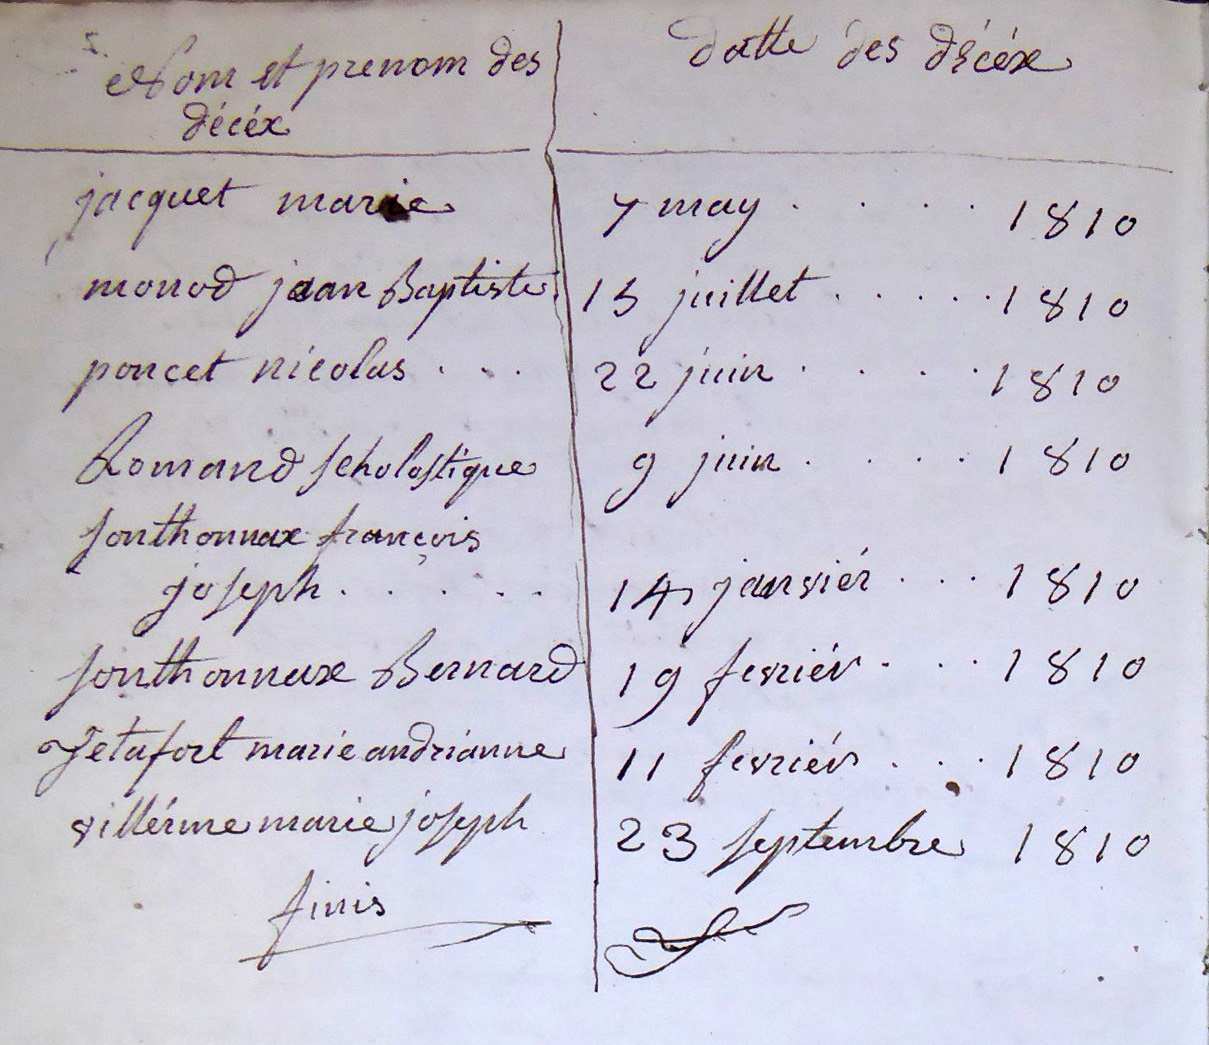 Nom et prenom des datte des décéx
décéx
jacquet marie 7 may . . . . 1810
monod jean Baptiste 15 juillet . . . . . 1810
poncet nicolas . . . 22 juin . . . . 1810
Romand scholastique 9 juin . . . . 1810
sonthonnax françois
joseph . . . . . 14 janviér . . . 1810
sonthonnax Bernard 19 fevriér . . . 1810
Tetafort marie andrianne 11 fevriér . . . 1810
villérme marie joseph 23 septembre 1810
finis